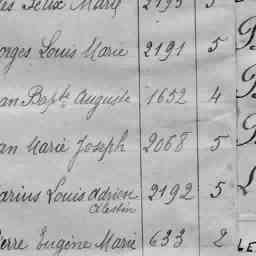 es Félix Marie 2195 5
orges Louis Marie 2191 5
an Bapte Auguste 1652 4
an Marie Joseph 2068 5
arius Louis Adrien 2192 5
Célestin
ierre Eugène Marie 633 2
LE